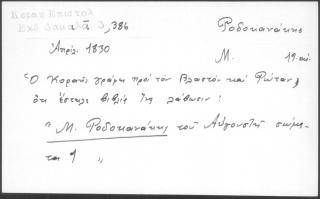 Κοραη Επιστολ
Εκδ Δαμαλᾶ 3, 386 Ροδοκανάκης
Ἀπρίλ. 1830 Μ. 19 αἰ.
Ὁ Κοραῆς γράφει πρὸς τὸν Βλαστὸν καὶ Φώταν
ὅτι ἔστειλε βιβλία
"Μ. Ροδοκανάκης τοῦ Αὐγουστῆ σώμα-
τα 1 "